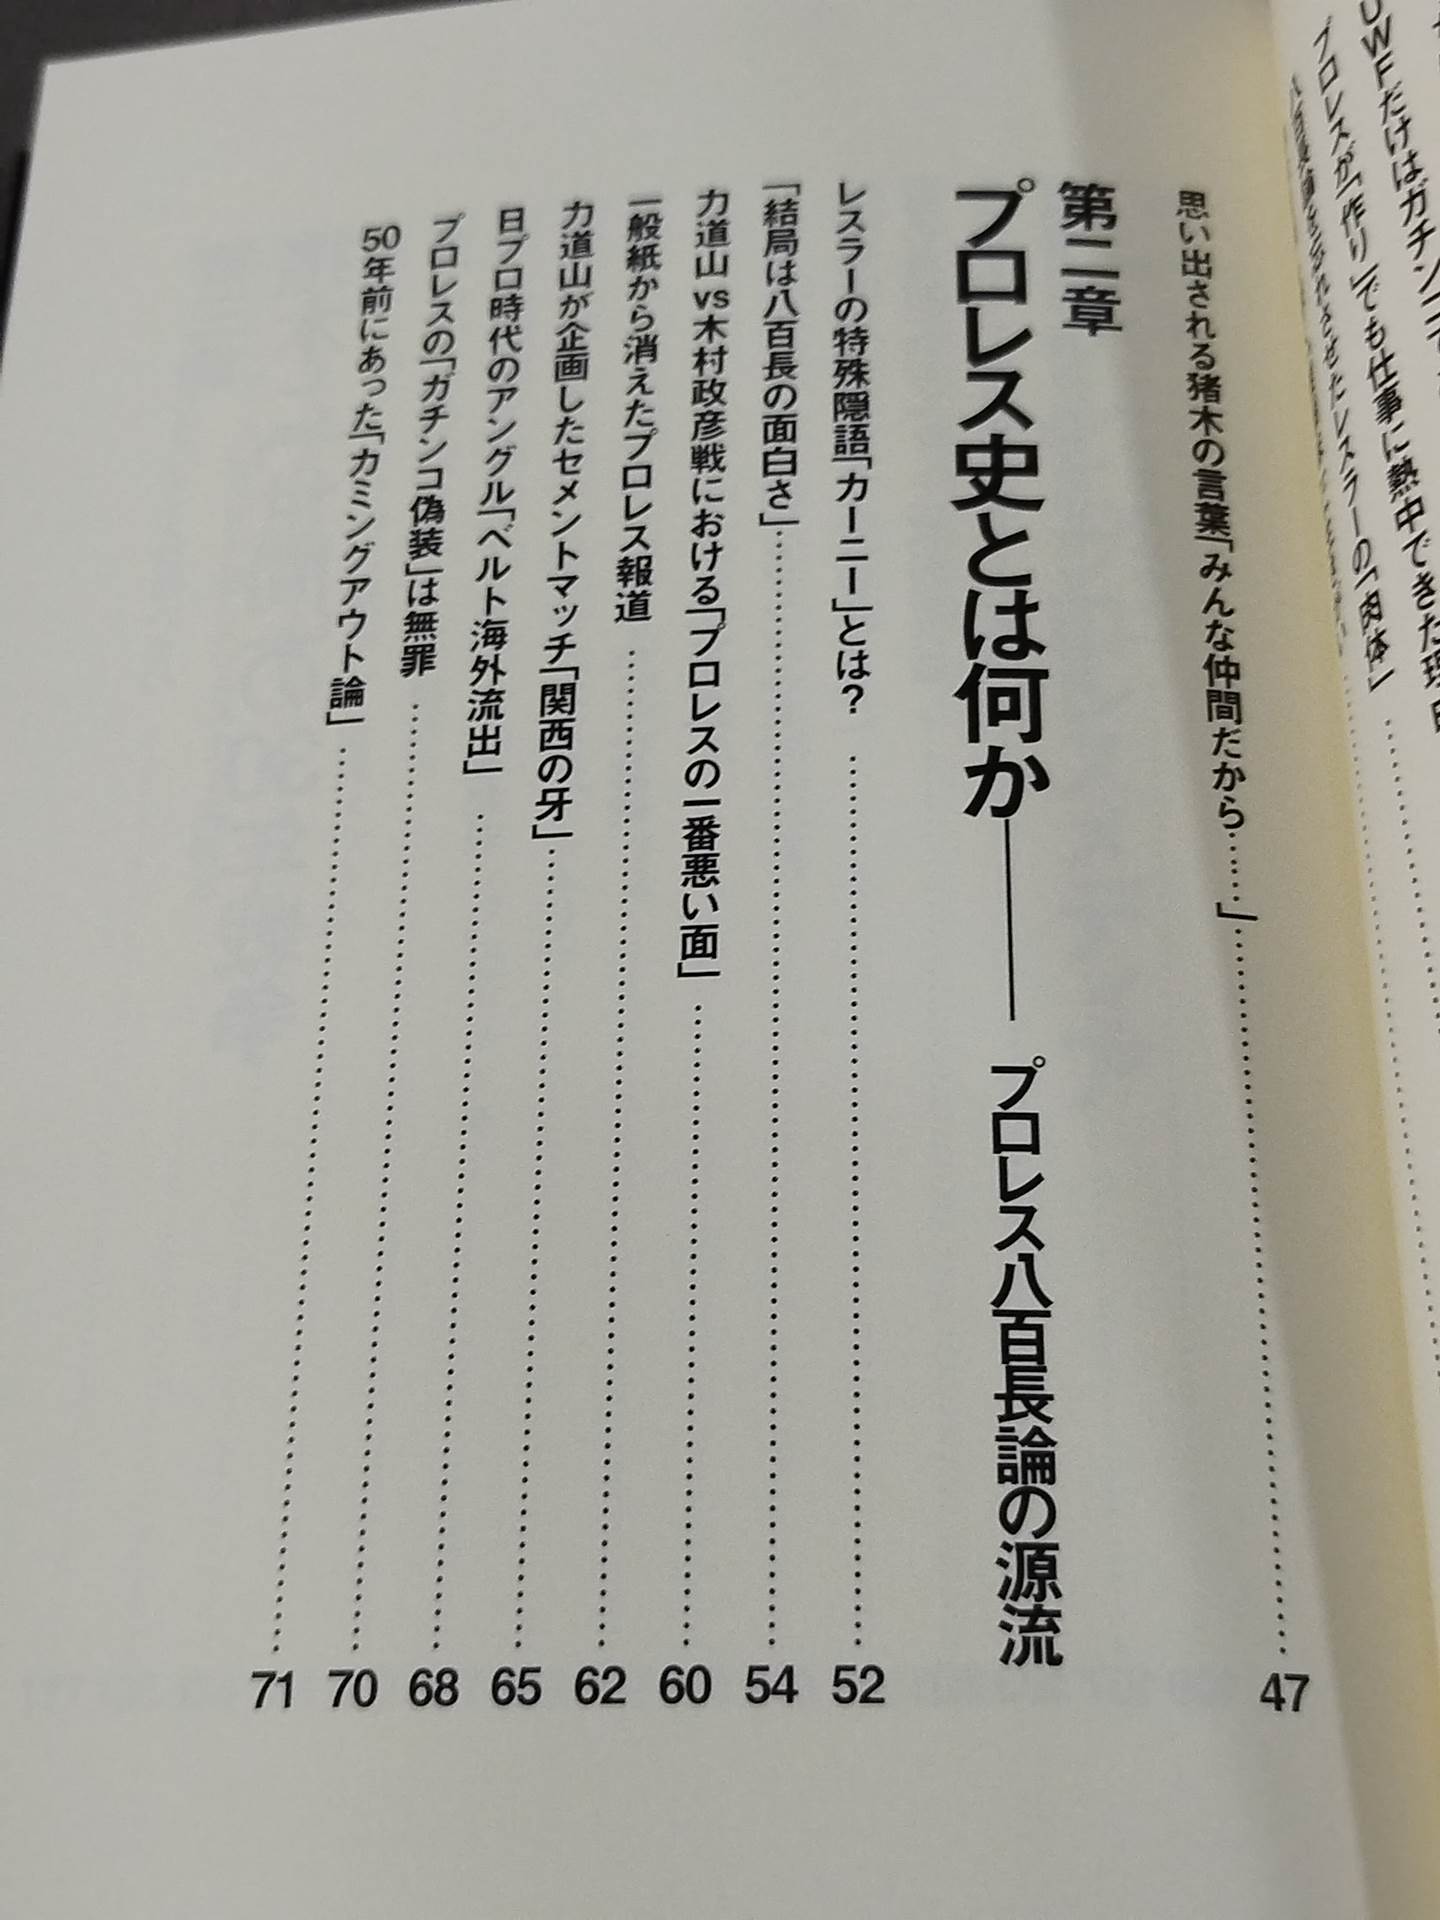 UWFだけはガチン
プロレスが「作り」でも仕事に熱中できた理由
レスラーの「肉体」
思い出される猪木の言葉「みんな仲間だから……」 47
第二章
プロレス史とは何か── プロレス八百長論の源流
レスラーの特殊隠語「カーニー」とは? 52
「結局は八百長の面白さ」 54
力道山vs木村政彦戦における「プロレスの一番悪い面」 60
一般紙から消えたプロレス報道 62
力道山が企画したセメントマッチ「関西の牙」 65
日プロ時代のアングル「ベルト海外流出」 68
プロレスの「ガチンコ偽装」は無罪 70
50年前にあった「カミングアウト論」 71